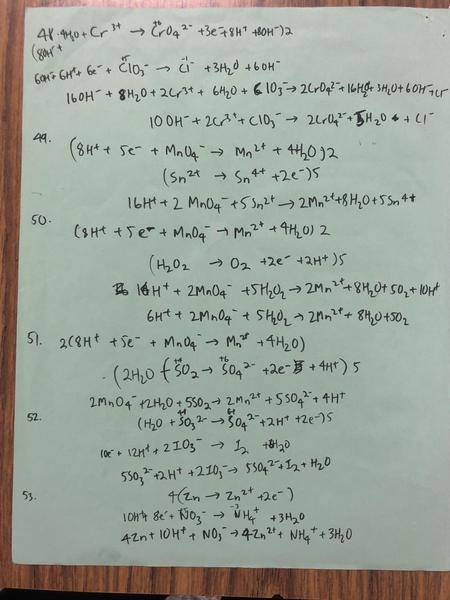 48. 4H2O + Cr³⁺ → CrO4²⁻ + 3e⁻ + 8H⁺ + 8OH⁻)2
(8OH⁻ +
6OH⁻ + 6H⁺ + 6e⁻ + ClO3⁻ → Cl⁻ + 3H2O + 6OH⁻
16OH⁻ + 8H2O + 2Cr³⁺ + 6H2O + ClO3⁻ → 2CrO4²⁻ + 16H2O + 3H2O + 6OH⁻ + Cl⁻
10OH⁻ + 2Cr³⁺ + ClO3⁻ → 2CrO4²⁻ + 5H2O + Cl⁻
49. (8H⁺ + 5e⁻ + MnO4⁻ → Mn²⁺ + 4H2O)2
(Sn²⁺ → Sn⁴⁺ + 2e⁻)5
16H⁺ + 2MnO4⁻ + 5Sn²⁺ → 2Mn²⁺ + 8H2O + 5Sn⁴⁺
50. (8H⁺ + 5e⁻ + MnO4⁻ → Mn²⁺ + 4H2O)2
(H2O2 → O2 + 2e⁻ + 2H⁺)5
16H⁺ + 2MnO4⁻ + 5H2O2 → 2Mn²⁺ + 8H2O + 5O2 + 10H⁺
6H⁺ + 2MnO4⁻ + 5H2O2 → 2Mn²⁺ + 8H2O + 5O2
51. 2(8H⁺ + 5e⁻ + MnO4⁻ → Mn²⁺ + 4H2O)
(2H2O + SO2 → SO4²⁻ + 2e⁻ + 4H⁺)5
2MnO4⁻ + 2H2O + 5SO2 → 2Mn²⁺ + 5SO4²⁻ + 4H⁺
52. (H2O + SO3²⁻ → SO4²⁻ + 2H⁺ + 2e⁻)5
10e⁻ + 12H⁺ + 2IO3⁻ → I2 + 6H2O
5SO3²⁻ + 2H⁺ + 2IO3⁻ → 5SO4²⁻ + I2 + H2O
53. 4(Zn → Zn²⁺ + 2e⁻)
10H⁺ + 8e⁻ + NO3⁻ → NH4⁺ + 3H2O
4Zn + 10H⁺ + NO3⁻ → 4Zn²⁺ + NH4⁺ + 3H2O